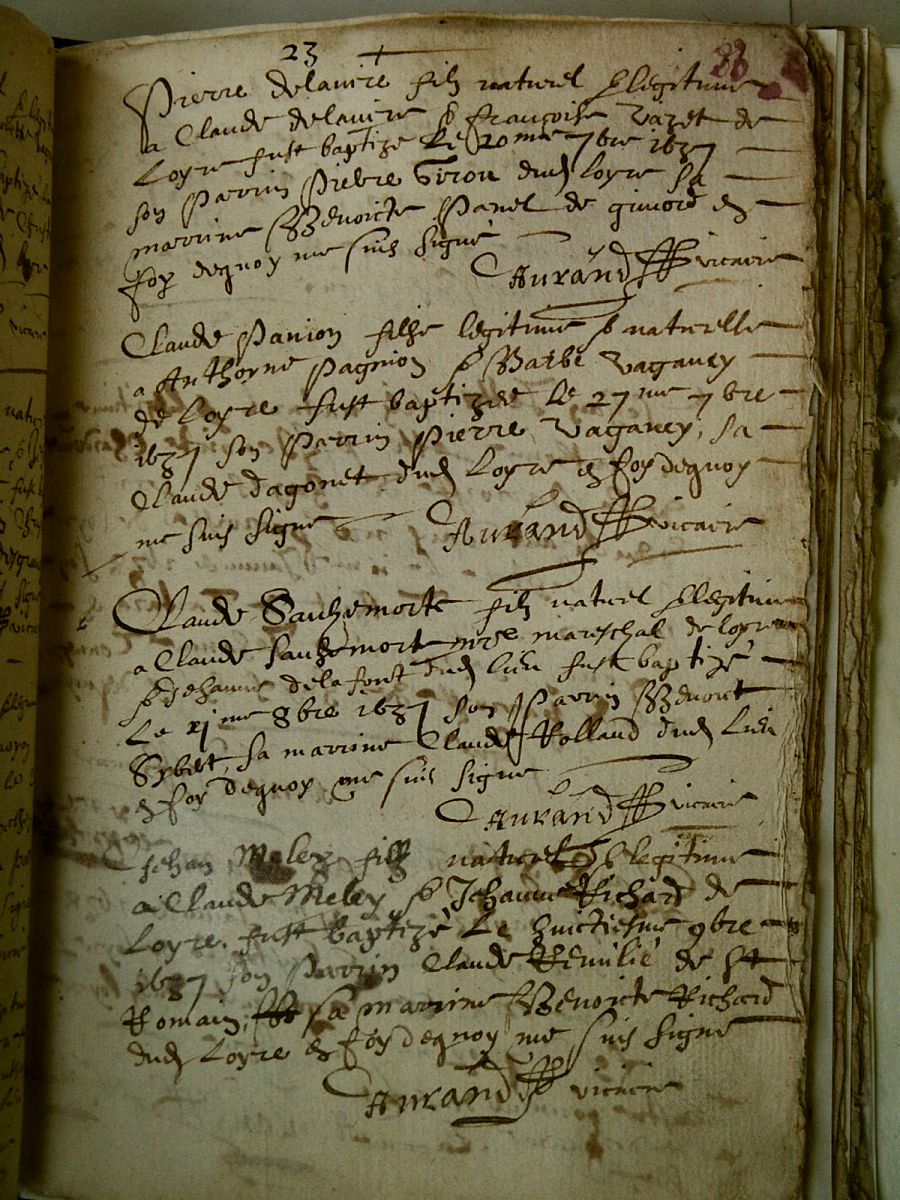 23
Pierre delavire filz naturel & legitime
a Claude delavire & francoise vazet de
Loyre fust baptize Le 20me 7bre 1637
son Parrin Pierre Giron dud Loyre sa
marrine Benoicte Panel de givord en
foy dequoy me suis signe
Aurand vicaire
Claude Panion filhe legitime & naturelle
a Anthoyne Pagnion & Barbe Vaganey
de Loyre fust baptizee Le 27me 7bre
1637 son Parrin Pierre Vaganey, sa
Claude dagonet dud Loyre en foy dequoy
me suis signe Aurand vicaire
Claude Sauzemorte filz naturel & legitime
a Claude sauzemort mre mareschal de loyre
& Jehanne delafont dud lieu fust baptizé
Le xjme 8bre 1637 son Parrin Benoit
Sybert, sa marrine Claude Rolland dud Lieu
en foy dequoy me suis signe
Aurand vicaire
Jehan Meley filz naturel & legitime
a Claude Meley & Jehanne Richard de
Loyre. fust baptizé Le huictiesme 9bre
1637 son Parrin Claude Remilié de St
Romain, sa marrine Benoicte Richard
dud Loyre en foy dequoy me suis signe
Aurand vicaire